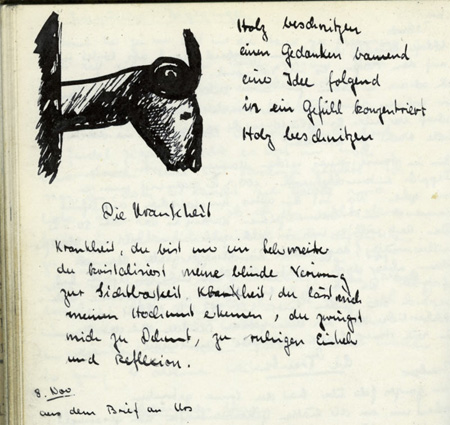 Holz beschnitzen
einen Gedanken bauend
eine Idee folgend
in ein Gefühl konzentriert
Holz beschnitzen
Die Krankheit
Krankheit, du bist nur ein
du kristalisierst meine blinde
zur Sichtbarkeit. Krankheit, du lässt mich
meinen Hochmut erkennen, du zwingst
mich zu Demut, zu ruhigen Einkehr
und Reflexion.
8. Nov
aus dem Brief an Urs